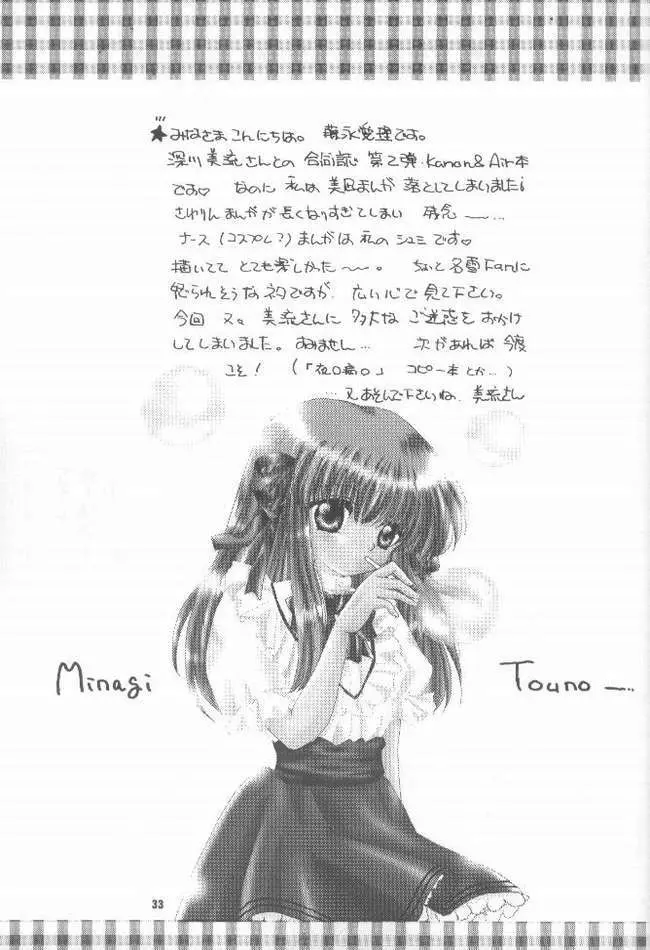 ★みなさまこんにちは。 藤永覚理です。
深川美流さんとの 合同誌 第2弾 Kanon&Air本
です♡ なのに 私は 美凪まんが 落としてしまいました
さゆりんまんがが長くなりすぎてしまい 残念〜…
ナース(コスプレ?)まんがは 私の シュミです♡
描いてて とても楽しかった〜。 ちょっと名雪Fanに
怒られそうなネタですが、広い心で見て下さい。
今回 又、美流さんに 多大な ご迷惑を おかけ
してしまいました。 すみません… 次があれば 今度
こそ! (「夜○病○」 コピー本 とか…)
…又あそんで下さいね、美流さん
Minagi Touno〜…
33